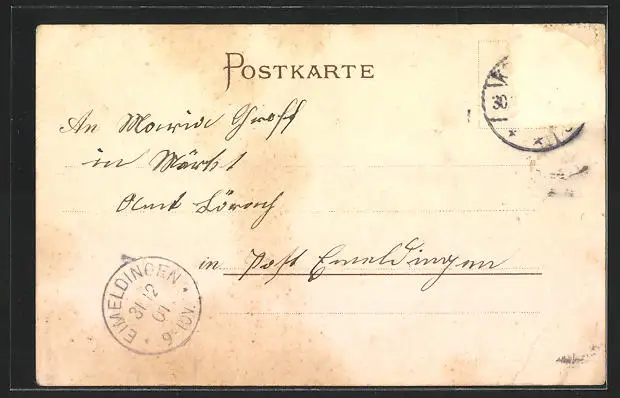 POSTKARTE
30
An Maria Groff
in Märkt
Amt Lörach
in Post Eimeldingen
EIMELDINGEN
31 12
01
9-10V.